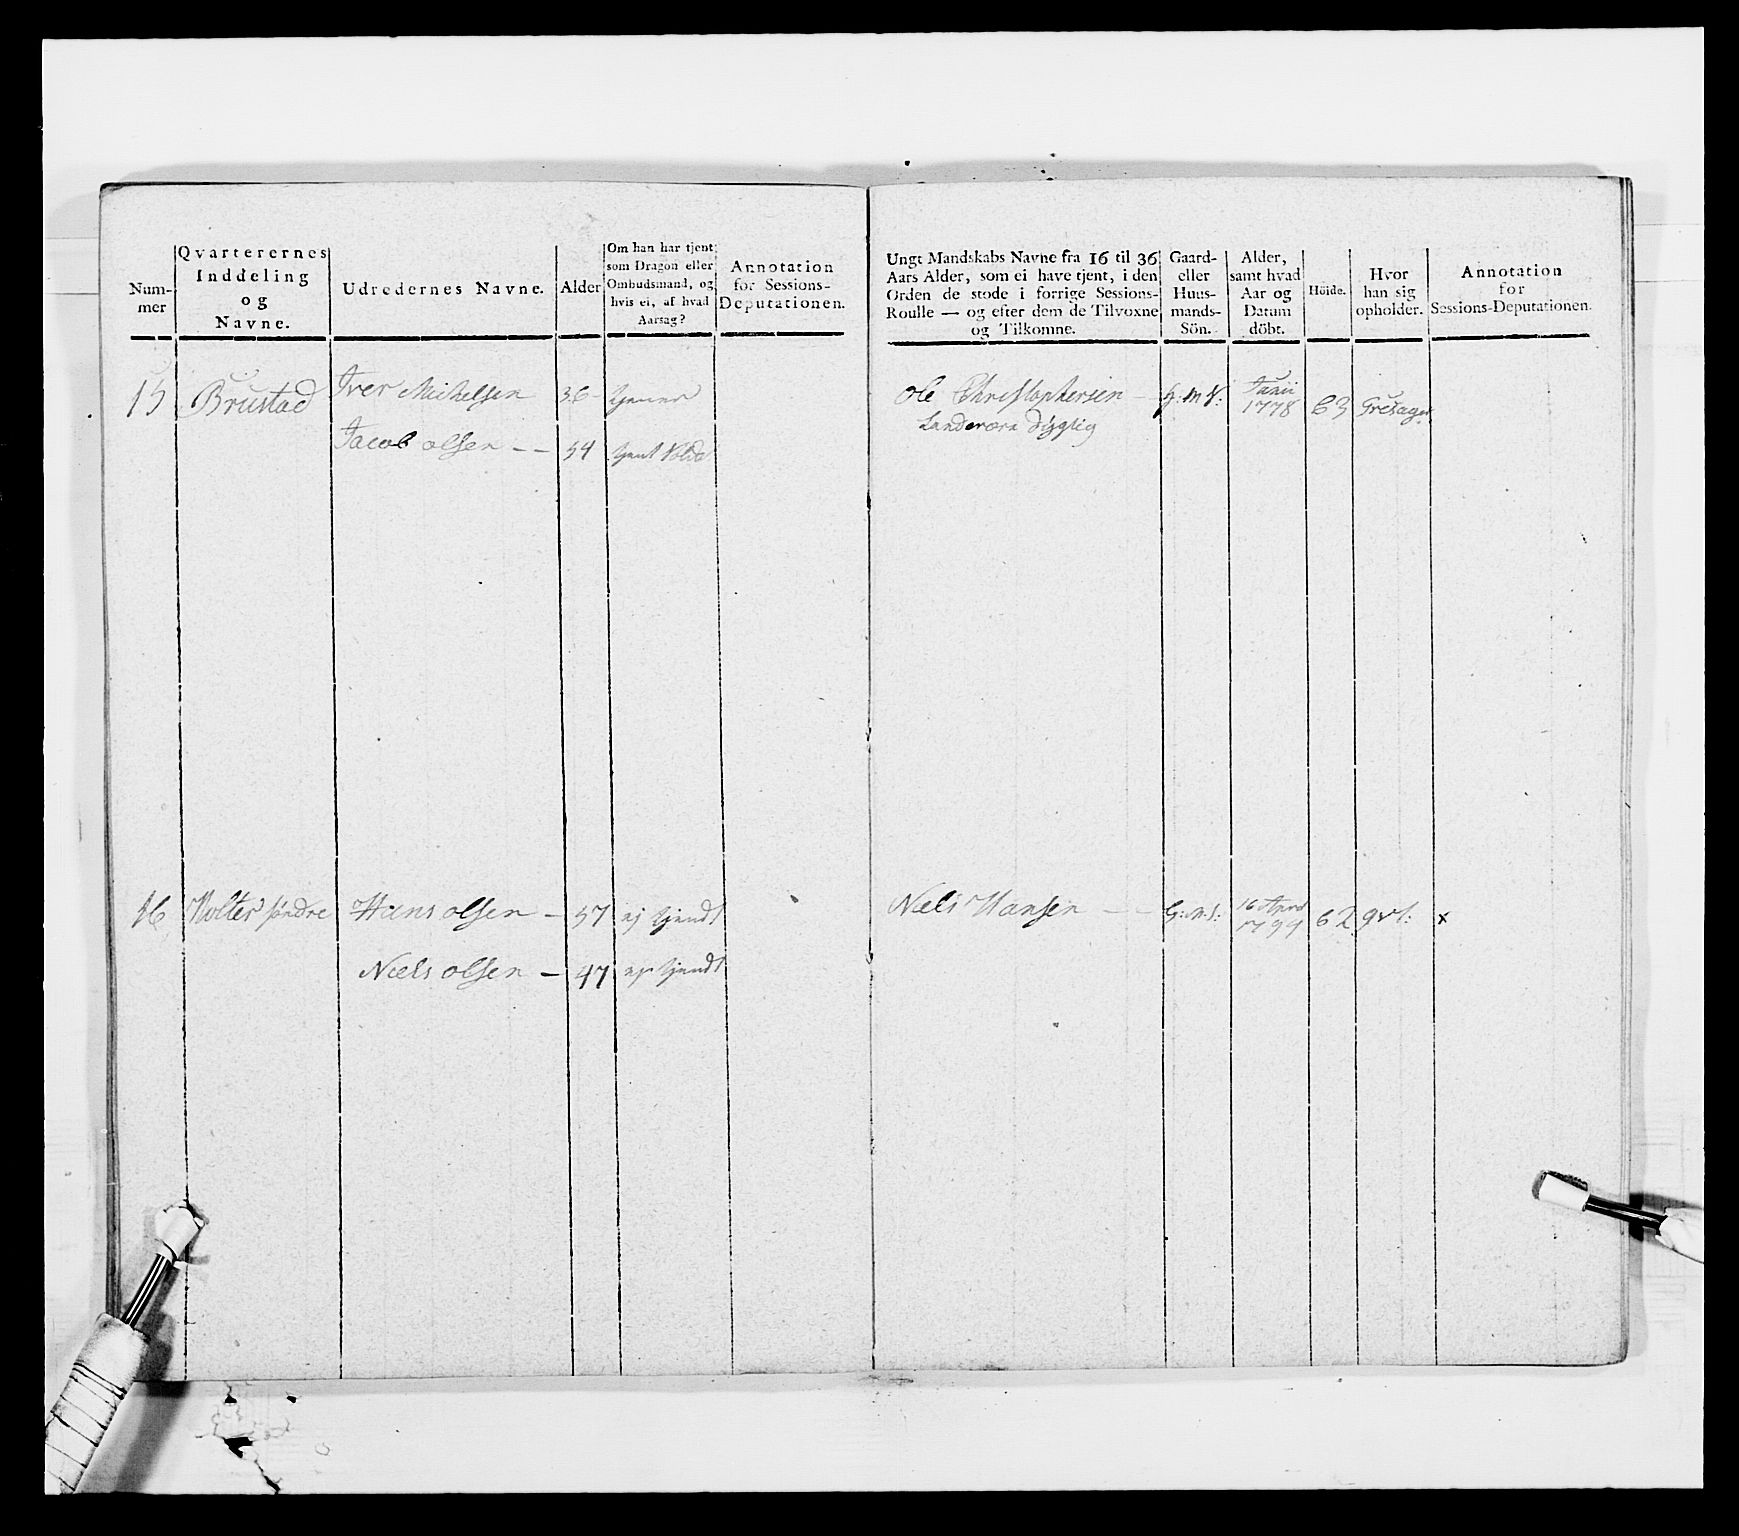 Num-
mer
Qvarterernes
Inddeling
og
Navne.
Udredernes Navne.
Alder
Om han har tjent
som Dragon eller
Ombudsmand, og
hvis ei, af hvad
Aarsag?
Annotation
for Sessions-
Deputationen.
15 Brustad Iver Michelsen 36
Jacob olsen - - 54 tjent
16 Holter søndre Hans olsen - 57 ej tjendt
Niels olsen - 47 ej tjendt
Ungt Mandskabs Navne fra 16 til 36
Aars Alder, som ei have tjent, i den
Orden de stode i forrige Sessions-
Roulle — og efter dem de Tilvoxne
og Tilkomne.
Gaard-
eller
Huus-
mands-
Sön.
Alder,
samt hvad
Aar og
Datum
döbt.
Höide.
Hvor
han sig
opholder.
Annotation
for
Sessions-Deputationen.
Ole Christophersen - G: M S: Junii
1778 63
Landværn Dygtig
Niels Hansen - - G: M: S: 16 April
62 qvt: x